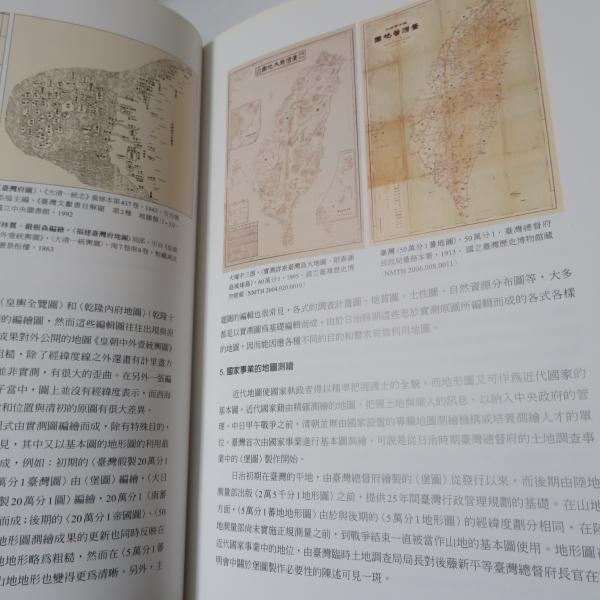 《臺灣府圖》,《大清一統志》重修本第437卷,1842,引自楊
國立中央圖書館,1992
《皇輿全覽圖》和《乾隆內府地圖》(乾隆十
的編繪圖,然而這些編輯圖往往出現與原
成果對外公開的地圖《皇朝中外壹統輿圖》
粗糙,除了經緯度線之外還畫有計里畫方
並非實測,有很大的歪曲。在另外一張編
子當中,圖上並沒有經緯度表示,而西海
狀和位置與清初的原圖有很大差異。
圖式由實測圖編繪而成,除有特殊目的,
見,其中又以基本圖的地形圖的利用最
成,例如:初期的《臺灣假製20萬分1
萬分1臺灣圖》由《堡圖》編繪,《大日
製20萬分1圖》編繪,20萬分1《南蕃
而成;後期的《20萬分1帝國圖》、《50
地形圖測繪成果的更新也同時反映在
山地地形略爲粗糙,然而在《5萬分1蕃
山地地形也變得更爲清晰。另外,主
臺灣島大地圖
臺灣蕃地圖
大塚宇三郎,《實測詳密臺灣島大地圖,附澎湖
島嶼港島》,60萬分1,1895,國立臺灣歷史博
物館藏(NMTH 2004.020.0010)
臺灣《50萬分1蕃地圖》,50萬分1,臺灣總督府
民政局蕃務本署,1913,國立臺灣歷史博物館藏
(NMTH 2006.008.0011)
題圖的編輯也很常見,各式的調查計畫圖、地質圖、土性圖、自然資源分布圖等,大多
都是以實測圖爲基礎編輯而成。由於日治時期這些忠於實測原圖所編輯而成的各式各樣
的地圖,因而能因應各種不同的目的和需求有效利用地圖。
5. 國家事業的地圖測繪
近代地圖使國家執政者得以精準把握國土的全貌,而地形圖又可作爲近代國家的
基本圖。近代國家藉由精確測繪的地圖,把握土地與個人的訊息,以納入中央政府的管
理。中日甲午戰爭之前,清朝並無由國家設置的專職地圖測繪機構或培養測繪人才的單
位。臺灣首次由國家事業進行基本圖測繪,可說是從日治時期臺灣總督府的土地調查事
業中的《堡圖》製作開始。
日治初期在臺灣的平地,由臺灣總督府繪製的《堡圖》從發行以來,而後期由陸地
測量部出版《2萬5千分1地形圖》之前,提供25年間臺灣行政管理規劃的基礎。在山地
方面,《5萬分1蕃地地形圖》由於與後期的《5萬分1地形圖》的經緯度劃分相同,在陸
地測量部尚未實施正規測量之前,到戰爭結束一直被當作山地的基本圖使用。地形圖在
近代國家事業中的地位,由臺灣臨時土地調查局局長對後藤新平等臺灣總督府長官在
明會中關於堡圖製作必要性的陳述可見一斑。